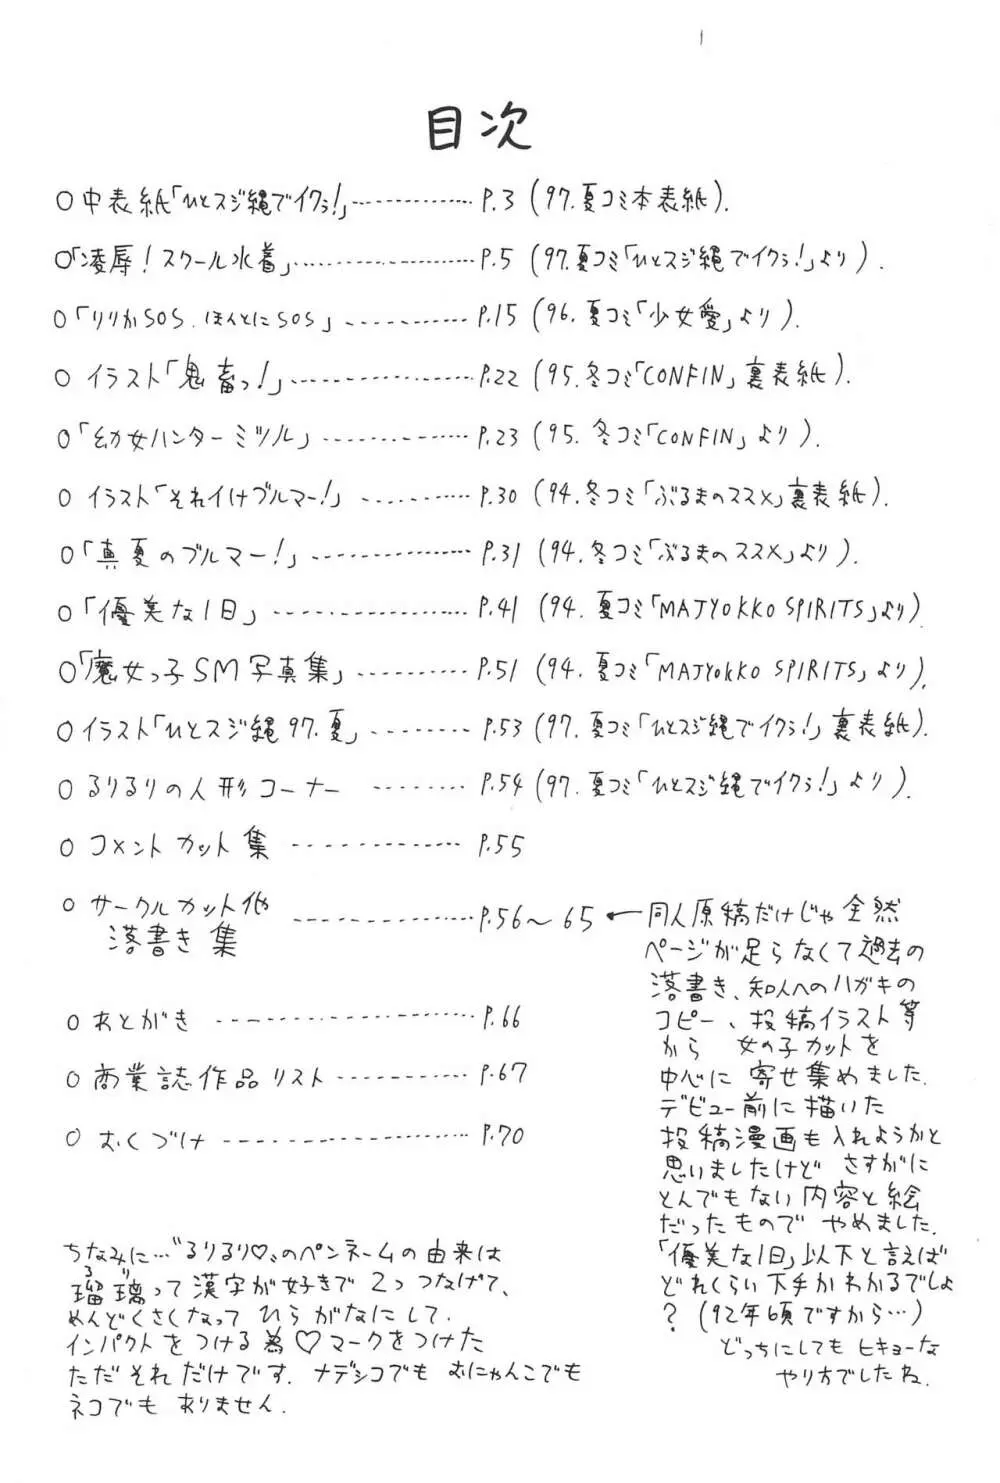 目次
○中表紙「ひとスジ縄でイクぅ!」‥‥‥‥‥ P.3 (97.夏コミ本表紙).
○「凌辱!スクール水着」‥‥‥‥‥ P.5 (97.夏コミ「ひとスジ縄でイクぅ!」より).
○「りりかSOS.ほんとにSOS」‥‥‥‥‥ P.15 (96.夏コミ「少女愛」より).
○ イラスト「鬼畜っ!」‥‥‥‥‥ P.22 (95.冬コミ「CONFIN」裏表紙).
○「幼女ハンターミツル」‥‥‥‥‥ P.23 (95.冬コミ「CONFIN」より).
○ イラスト「それイけブルマー!」‥‥‥‥‥ P.30 (94.冬コミ「ぶるまのススメ」裏表紙).
○「真夏のブルマー!」‥‥‥‥‥ P.31 (94.冬コミ「ぶるまのススメ」より).
○「優美な1日」‥‥‥‥‥ P.41 (94.夏コミ「MAJYOKKO SPIRITS」より)
○「魔女っ子SM写真集」‥‥‥‥‥ P.51 (94.夏コミ「MAJYOKKO SPIRITS」より).
○イラスト「ひとスジ縄97.夏」‥‥‥‥‥ P.53 (97.夏コミ「ひとスジ縄でイクぅ!」裏表紙).
○ るりるりの人形コーナー ‥‥‥‥‥ P.54 (97.夏コミ「ひとスジ縄でイクぅ!」より).
○ コメントカット集 ‥‥‥‥‥ P.55
○ サークルカット他
落書き集 ‥‥‥‥‥ P.56〜65
←同人原稿だけじゃ全然
ページが足らなくて過去の
落書き、知人へのハガキの
コピー、投稿イラスト等
から 女の子カットを
中心に寄せ集めました.
デビュー前に描いた
投稿漫画も入れようかと
思いましたけど さすがに
とんでもない内容と絵
だったもので やめました.
「優美な1日」以下と言えば
どれくらい下手かわかるでしょ
? (92年頃ですから…)
どっちにしても ヒキョーな
やり方でしたね.
○ あとがき ‥‥‥‥‥ P.66
○ 商業誌作品リスト ‥‥‥‥‥ P.67
○ おくづけ ‥‥‥‥‥ P.70
ちなみに…"るりるり♡"のペンネームの由来は
るり
瑠璃って漢字が好きで 2つつなげて、
めんどくさくなって ひらがなにして.
インパクトをつける為♡マークをつけた
ただそれだけです. ナデシコでも おにゃんこでも
ネコでも ありません.